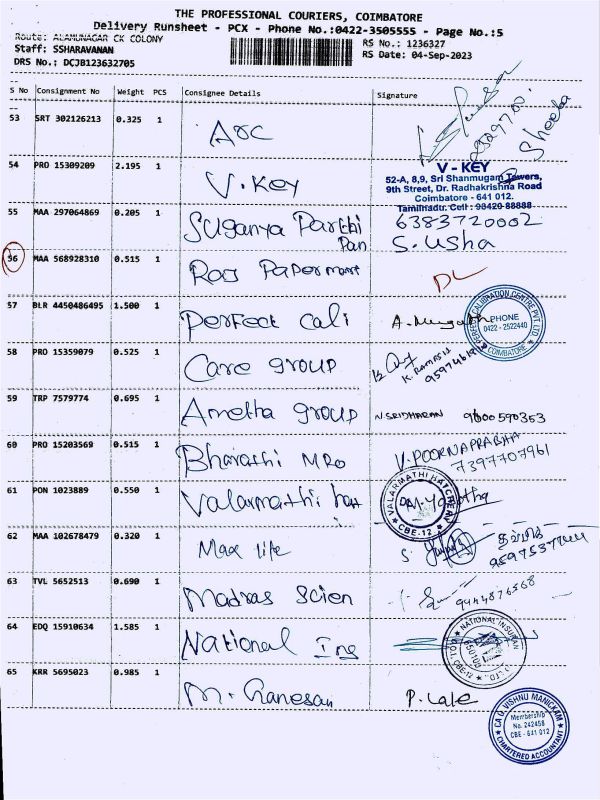 THE PROFESSIONAL COURIERS, COIMBATORE
Delivery Runsheet - PCX - Phone No.:0422-3505555 - Page No.:5
Route: ALAMUNAGAR CK COLONY
Staff: SSHARAVANAN
DRS No.: DCJB123632705
RS No.: 1236327
RS Date: 04-Sep-2023
S No Consignment No Weight PCS Consignee Details Signature
53 SRT 302126213 0.325 1 ARC Sheeba
54 PRO 15309209 2.195 1 V.KEY
V-KEY
52-A, 8,9, Sri Shanmugam Towers,
9th Street, Dr. Radhakrishna Road
Coimbatore - 641 012.
Tamilnadu. Cell : 98420 88888
55 MAA 297064869 0.205 1 Suganya Parthi 6383720002
Pan S. Usha
56 MAA 568928310 0.515 1 Raj Papermart DL
57 BLR 4450486495 1.500 1 Perfect Cali
PERFECT CALIBRATION CENTRE PVT LTD
PHONE
0422 - 2522440
COIMBATORE
58 PRO 15359079 0.525 1 Care group
59 TRP 7579774 0.695 1 Ametha group N SRIDHARAN 9600590353
60 PRO 15203569 0.515 1 Bharathi MRO V. POORNAPRABHA
7397707961
61 PON 1023889 0.550 1 Valarmathi hat
VALARMATHI HATCHERY
CBE-12
62 MAA 102678479 0.320 1 Max life
63 TVL 5652513 0.690 1 Madras Scien 9444876568
64 EDQ 15910634 1.585 1 National Ins
NATIONAL INSURAN
CBE-12
65 KRR 5695023 0.985 1 M. Ganesan P. Lale
CA G. VISHNU MANICKAM
Membership
No. 242458
CBE - 641 012
CHARTERED ACCOUNTANT